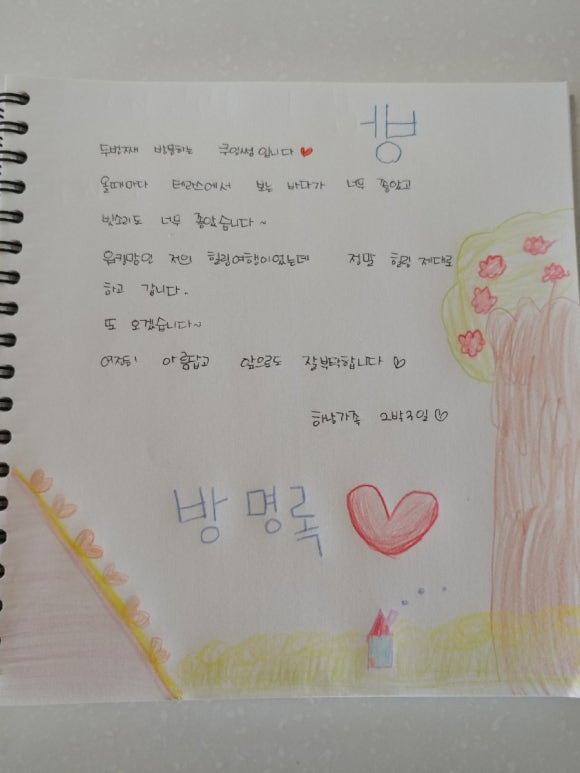 두번째 방문하는 입니다 ♥
올때마다 테라스에서 보는 바다가 너무 좋았고
빗소리도 너무 좋았습니다~
워킹맘인 저의 힐링여행이었는데 정말 힐링 제대로
하고 갑니다..
또 오겠습니다~
여전히 아름답고 앞으로도 잘부탁합니다 ♡
하남가족 2박3일 ♡
방명록